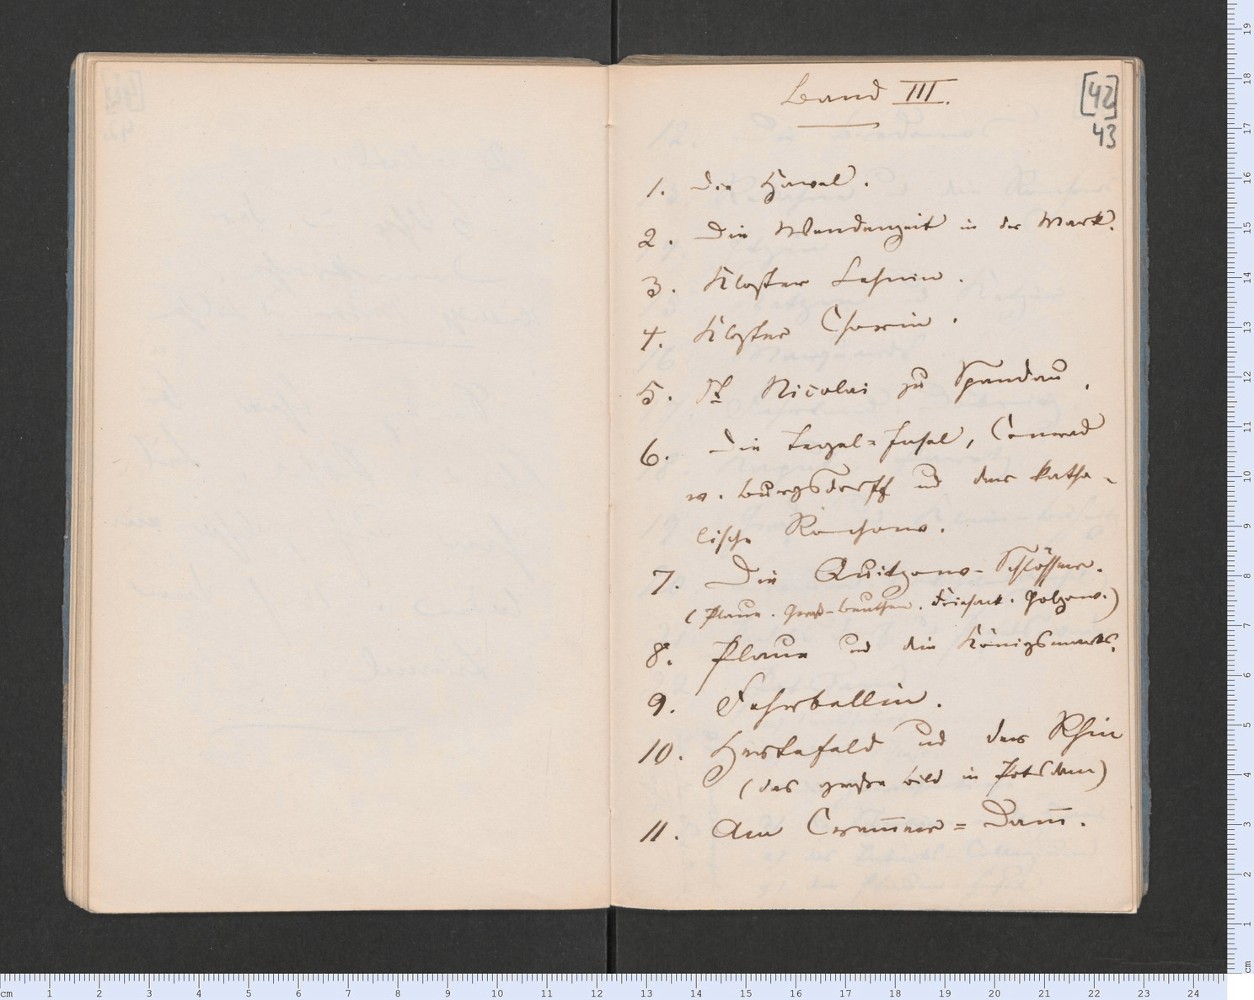 Band III.
[42]
43
1. Die Havel.
2. Die Wendenzeit in der Mark.
3. Kloster Lehnin.
4. Kloster Chorin.
5. St Nicolai zu Spandau.
6. Die Tegel-Insel, Conrad
v. Burgsdorff und der katho-
lische Rochow.
7. Die Quitzow-Schlösser.
(Plaue. Groß-Beuthen. Friesack. Golzow.)
8. Plaue und die Königsmarks.
9. Fehrbellin.
10. Hertefeld und der Rhin
(das große Bild in Potsdam)
11. Am Crem̅er-Dam̅.